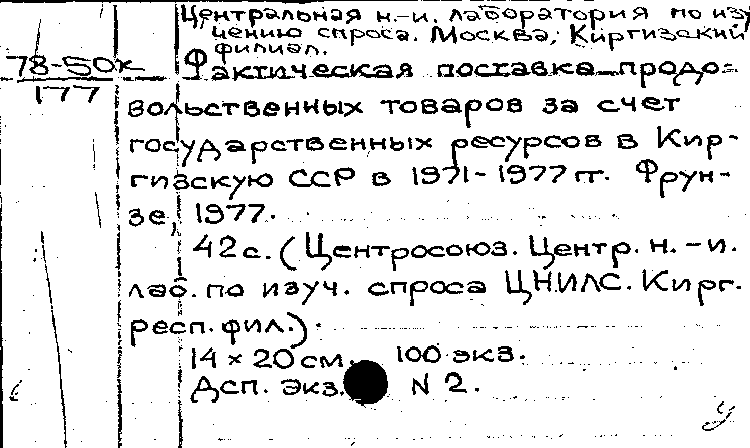 Центральная н.-и. лаборатория по изу
чению спроса. Москва, Киргизский
филиал.
78-50к
177
Фактическая поставка продо-
вольственных товаров за счет
государственных ресурсов в Кир-
гизскую ССР в 1971-1977 гг. Фрун-
зе, 1977.
42 с. (Центросоюз. Центр. н.-и.
лаб. по изуч. спроса ЦНИЛС. Кирг.
респ. фил.).
14 × 20 см. 100 экз.
Дсп. экз. N 2.